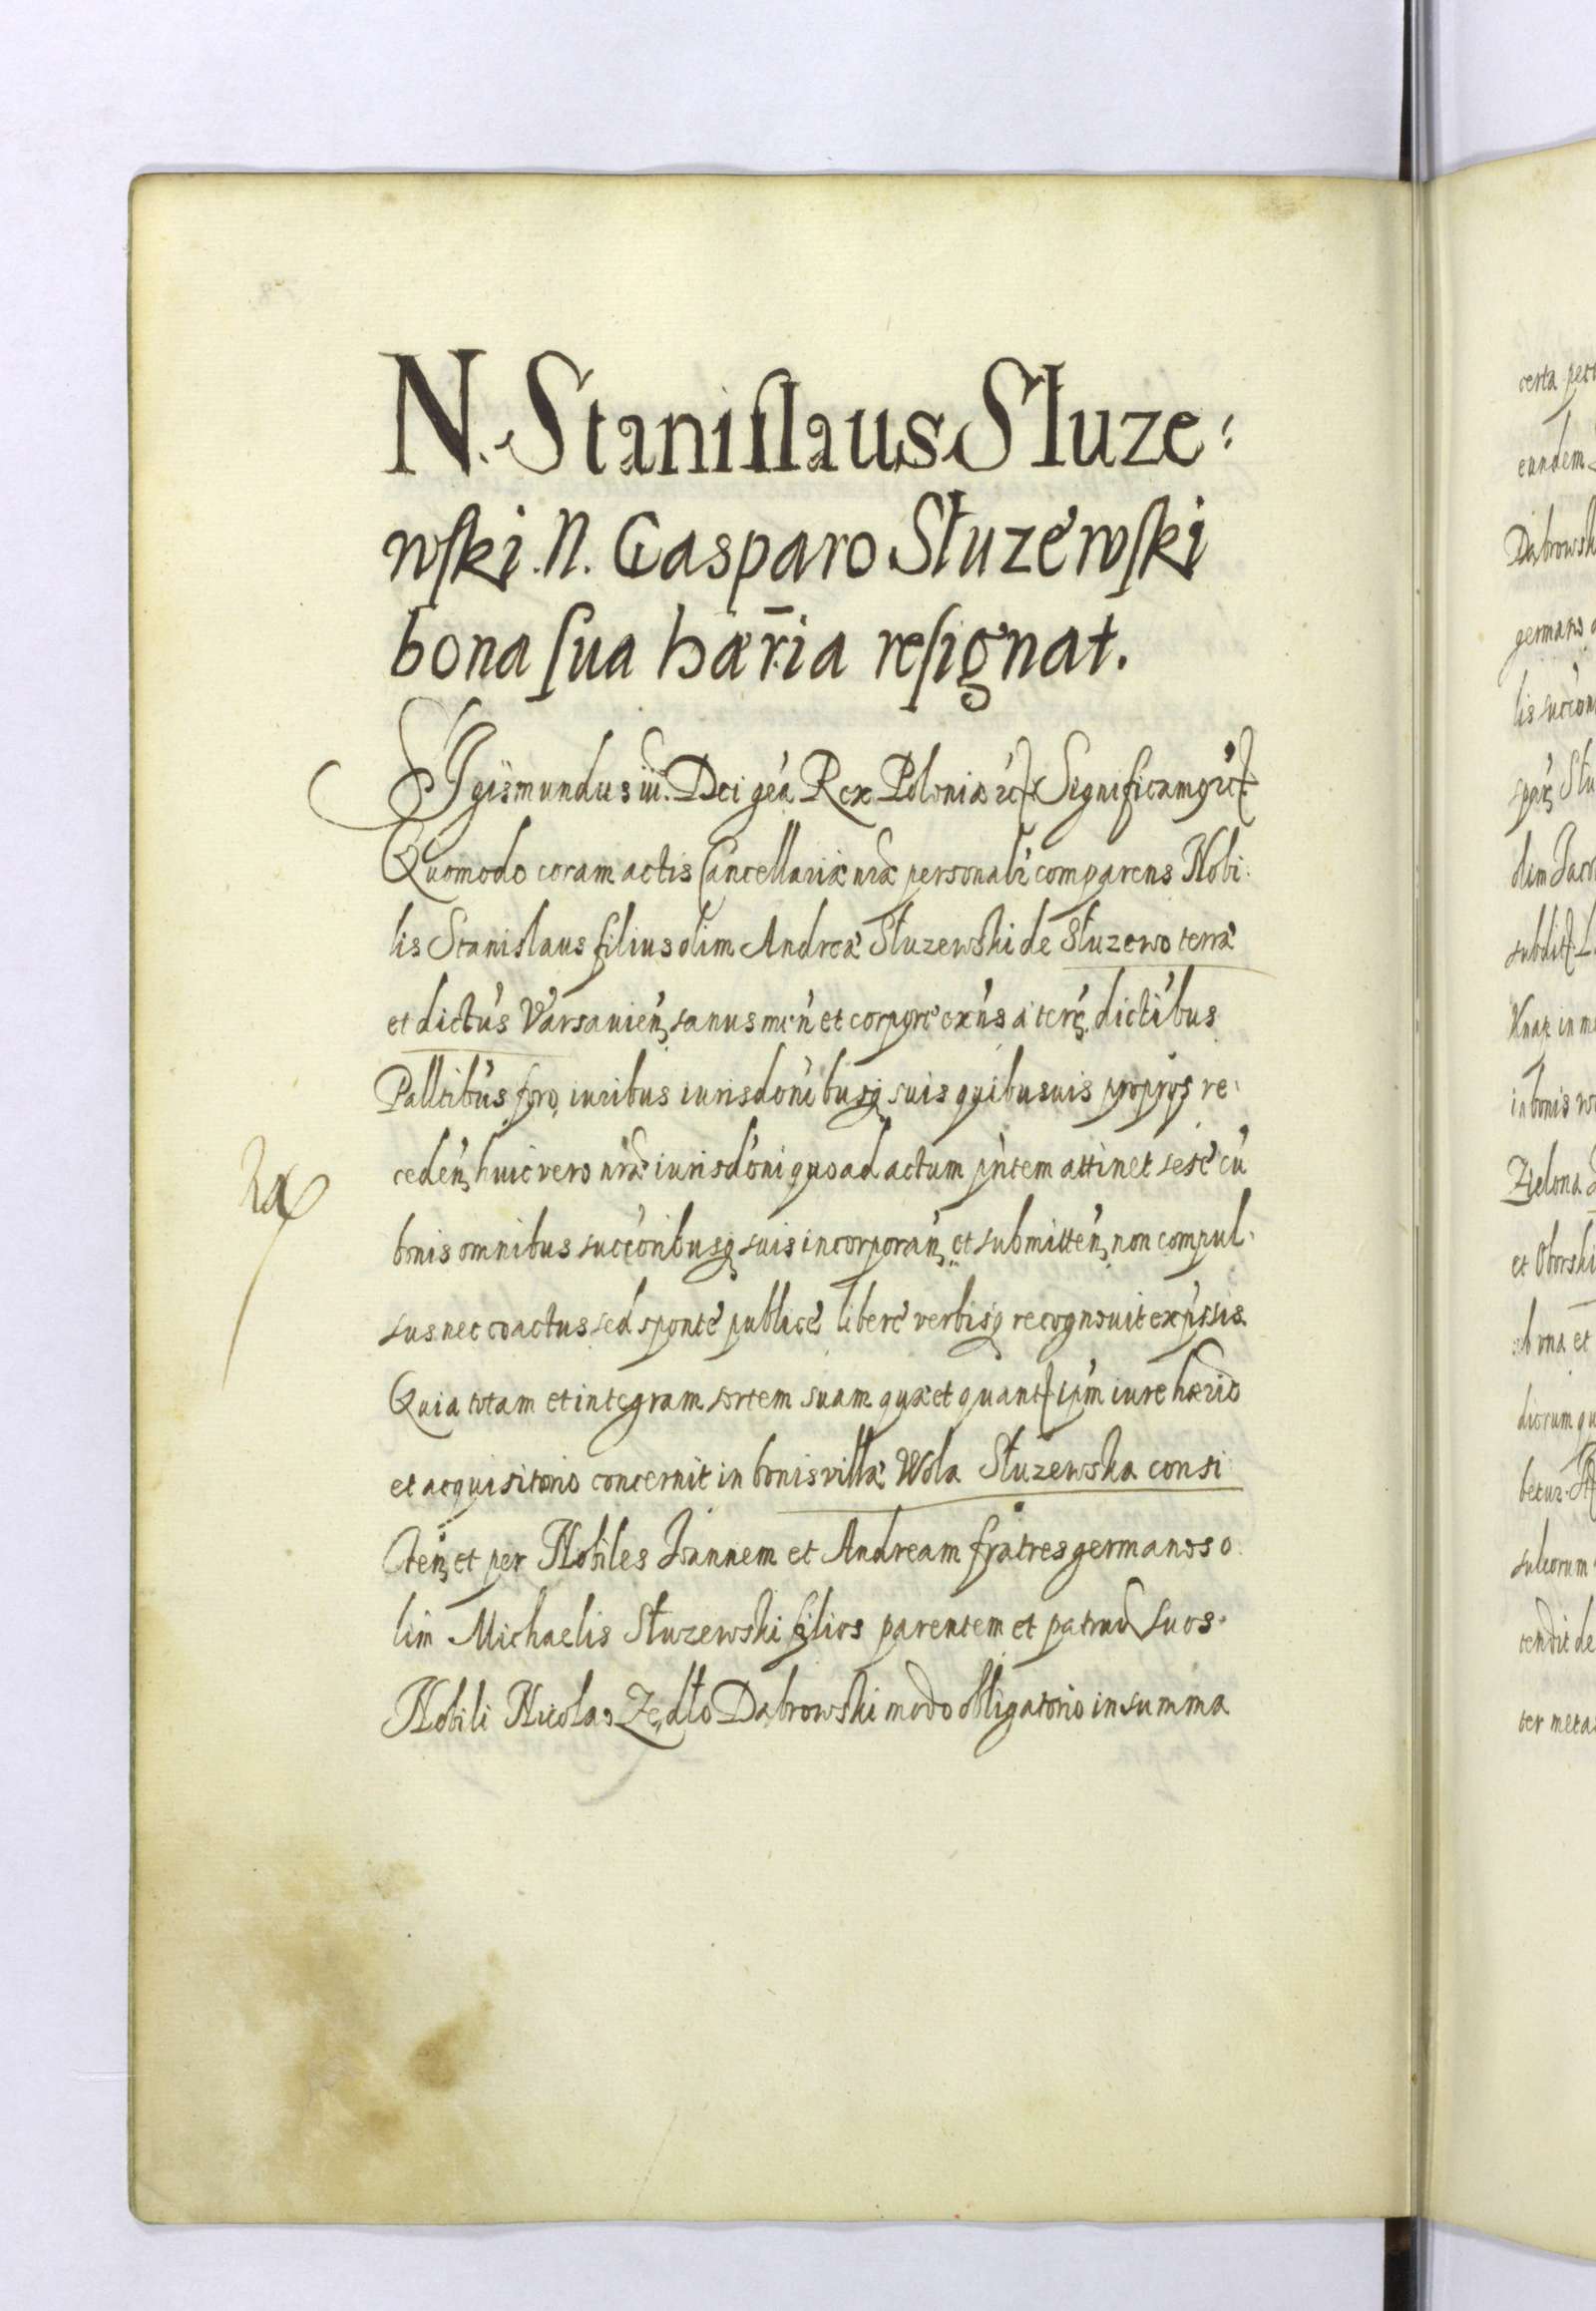 N. Staniſlaus Słuze:
wſki. N. Casparo Słuzéwſki
bona ſua hær̄ia reſignat.
SIgismundus iii. Dei gẽa Rex Poloniæ etc Significamus etc
Quomodo coram actis Cancellariæ nræ personalr comparens Nobi:
lis Stanislaus filius olim Andreæ Słuzewski de Słuzewo terræ
et dictus Varsavien, sanus men et corpore exns a terr, dictibus
Pallibus foro, iuribus iurisdonibusq suis quibusuis proprys re:
ceden, huic vero nræ iurisdoni quo ad actum pntem attinet sese cũ
bonis omnibus succoribusq suis incorporan, et submitten, non compul:
sus nec coactus sed sponte publice libere verbisq recognouit expssis
Quia totam et integram sortem suam quæ et quanta ipm iure hærio
et acquisitorio concernit in bonis villæ Wola Słuzewska consi
sten, et per Nobiles Ioannem et Andream fratres germanos o:
lim Michaelis Słuzewski filios parentem et patruũ suos.
Nobili Nicolao Zędło Dąbrowski modo obligatorio in summa
certa
eundem
Dąbrowsk
germans
lis succon
dim Jaco
Knap in me
in bonis
Zielona
et Oborski
diorum qu
betur.
sulcorum
tendit de
ter metas